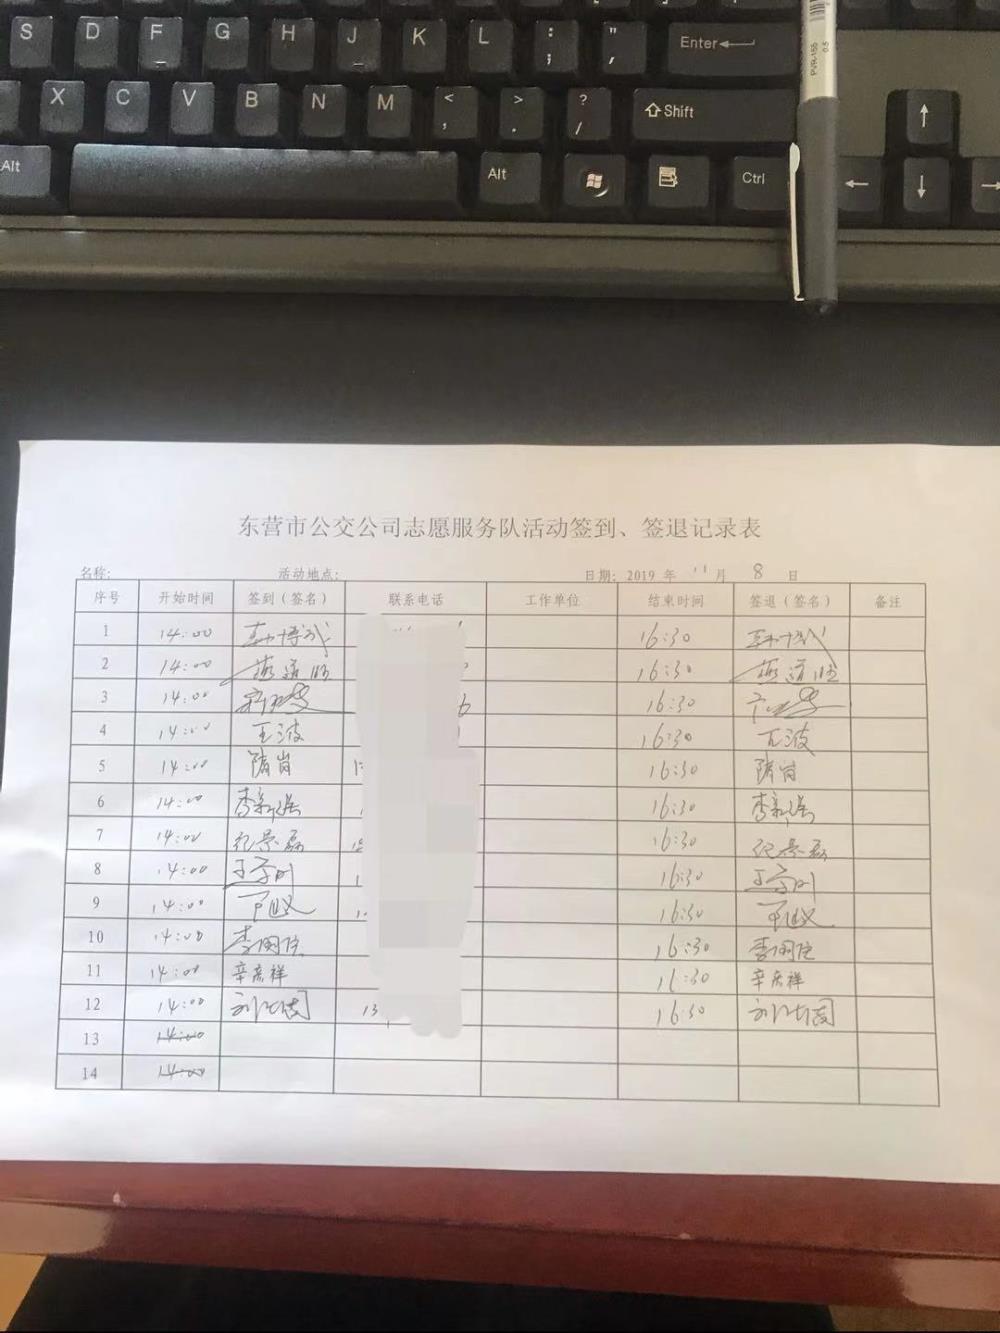 S D F G H J K L : ; " ' Enter
PVR-155 0.5
X C V B N M < , > . ? / Shift
Alt Alt Ctrl
东营市公交公司志愿服务队活动签到、签退记录表
名称: 活动地点: 日期: 2019 年 11 月 8 日
序号 开始时间 签到（签名） 联系电话 工作单位 结束时间 签退（签名） 备注
1 14:00 16:30
2 14:00 16:30
3 14:00 16:30
4 14:00 王波 16:30 王波
5 14:00 隋岗 16:30 隋岗
6 14:00 16:30
7 14:00 纪景磊 16:30 纪景磊
8 14:00 16:30
9 14:00 16:30
10 14:00 16:30
11 14:00 辛彦祥 16:30 辛彦祥
12 14:00 13 16:30
13 14:00
14 14:00